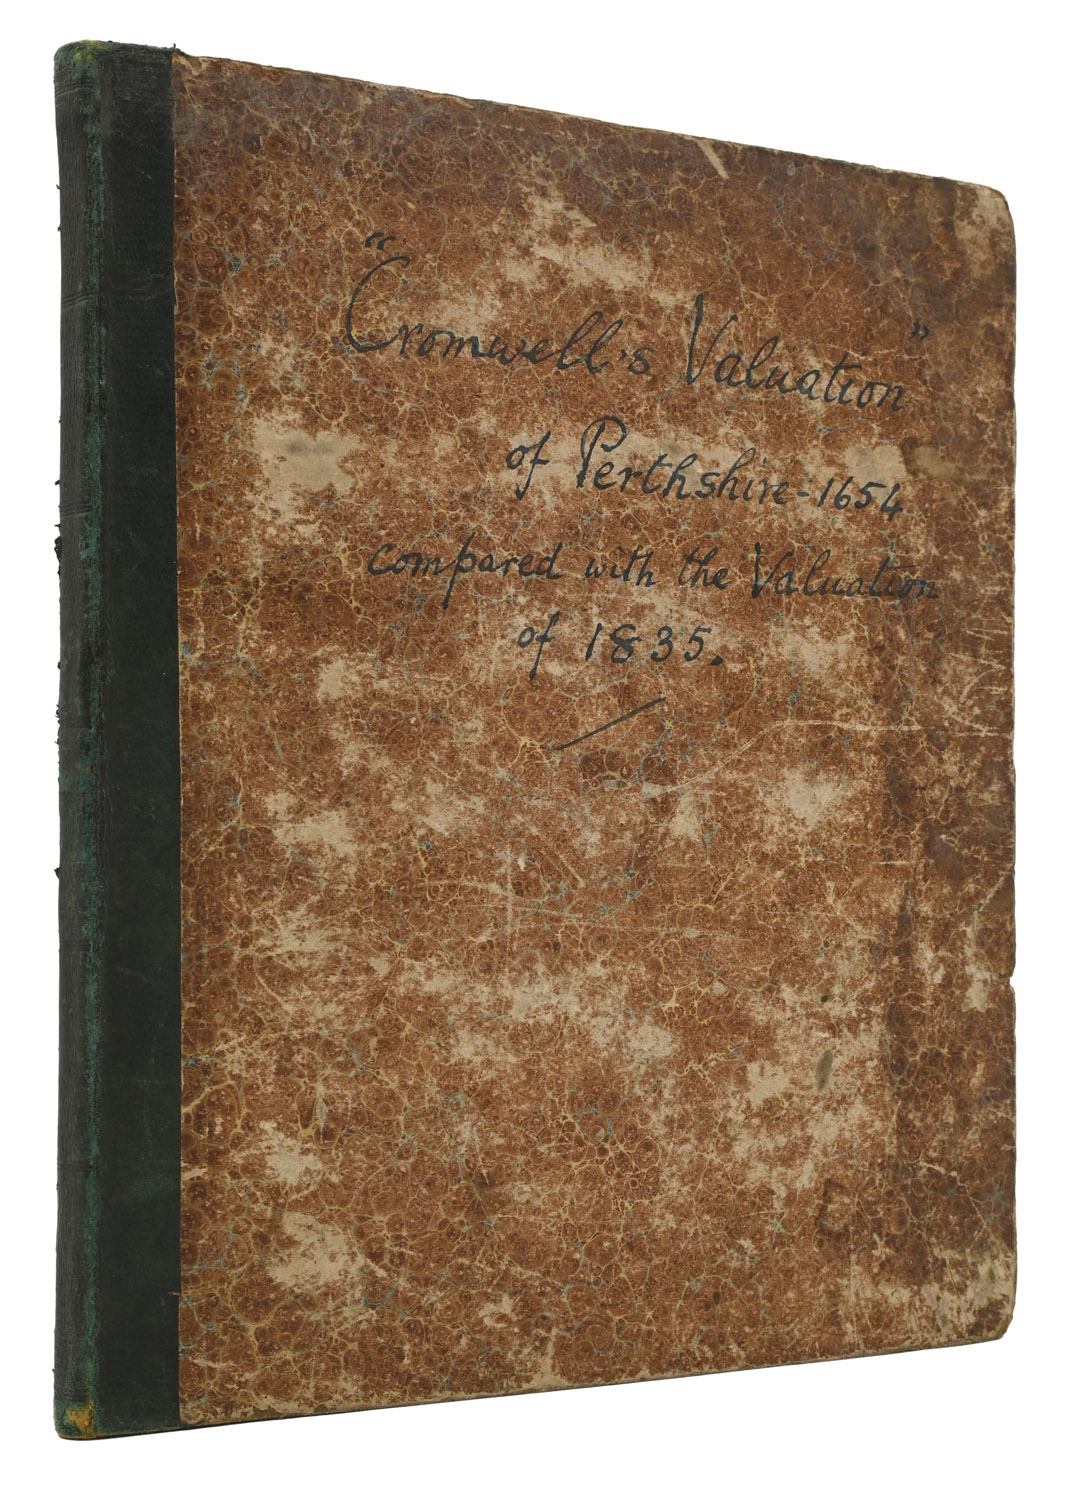 "Cromwell's Valuation"
of Perthshire - 1654
compared with the Valuation
of 1835.